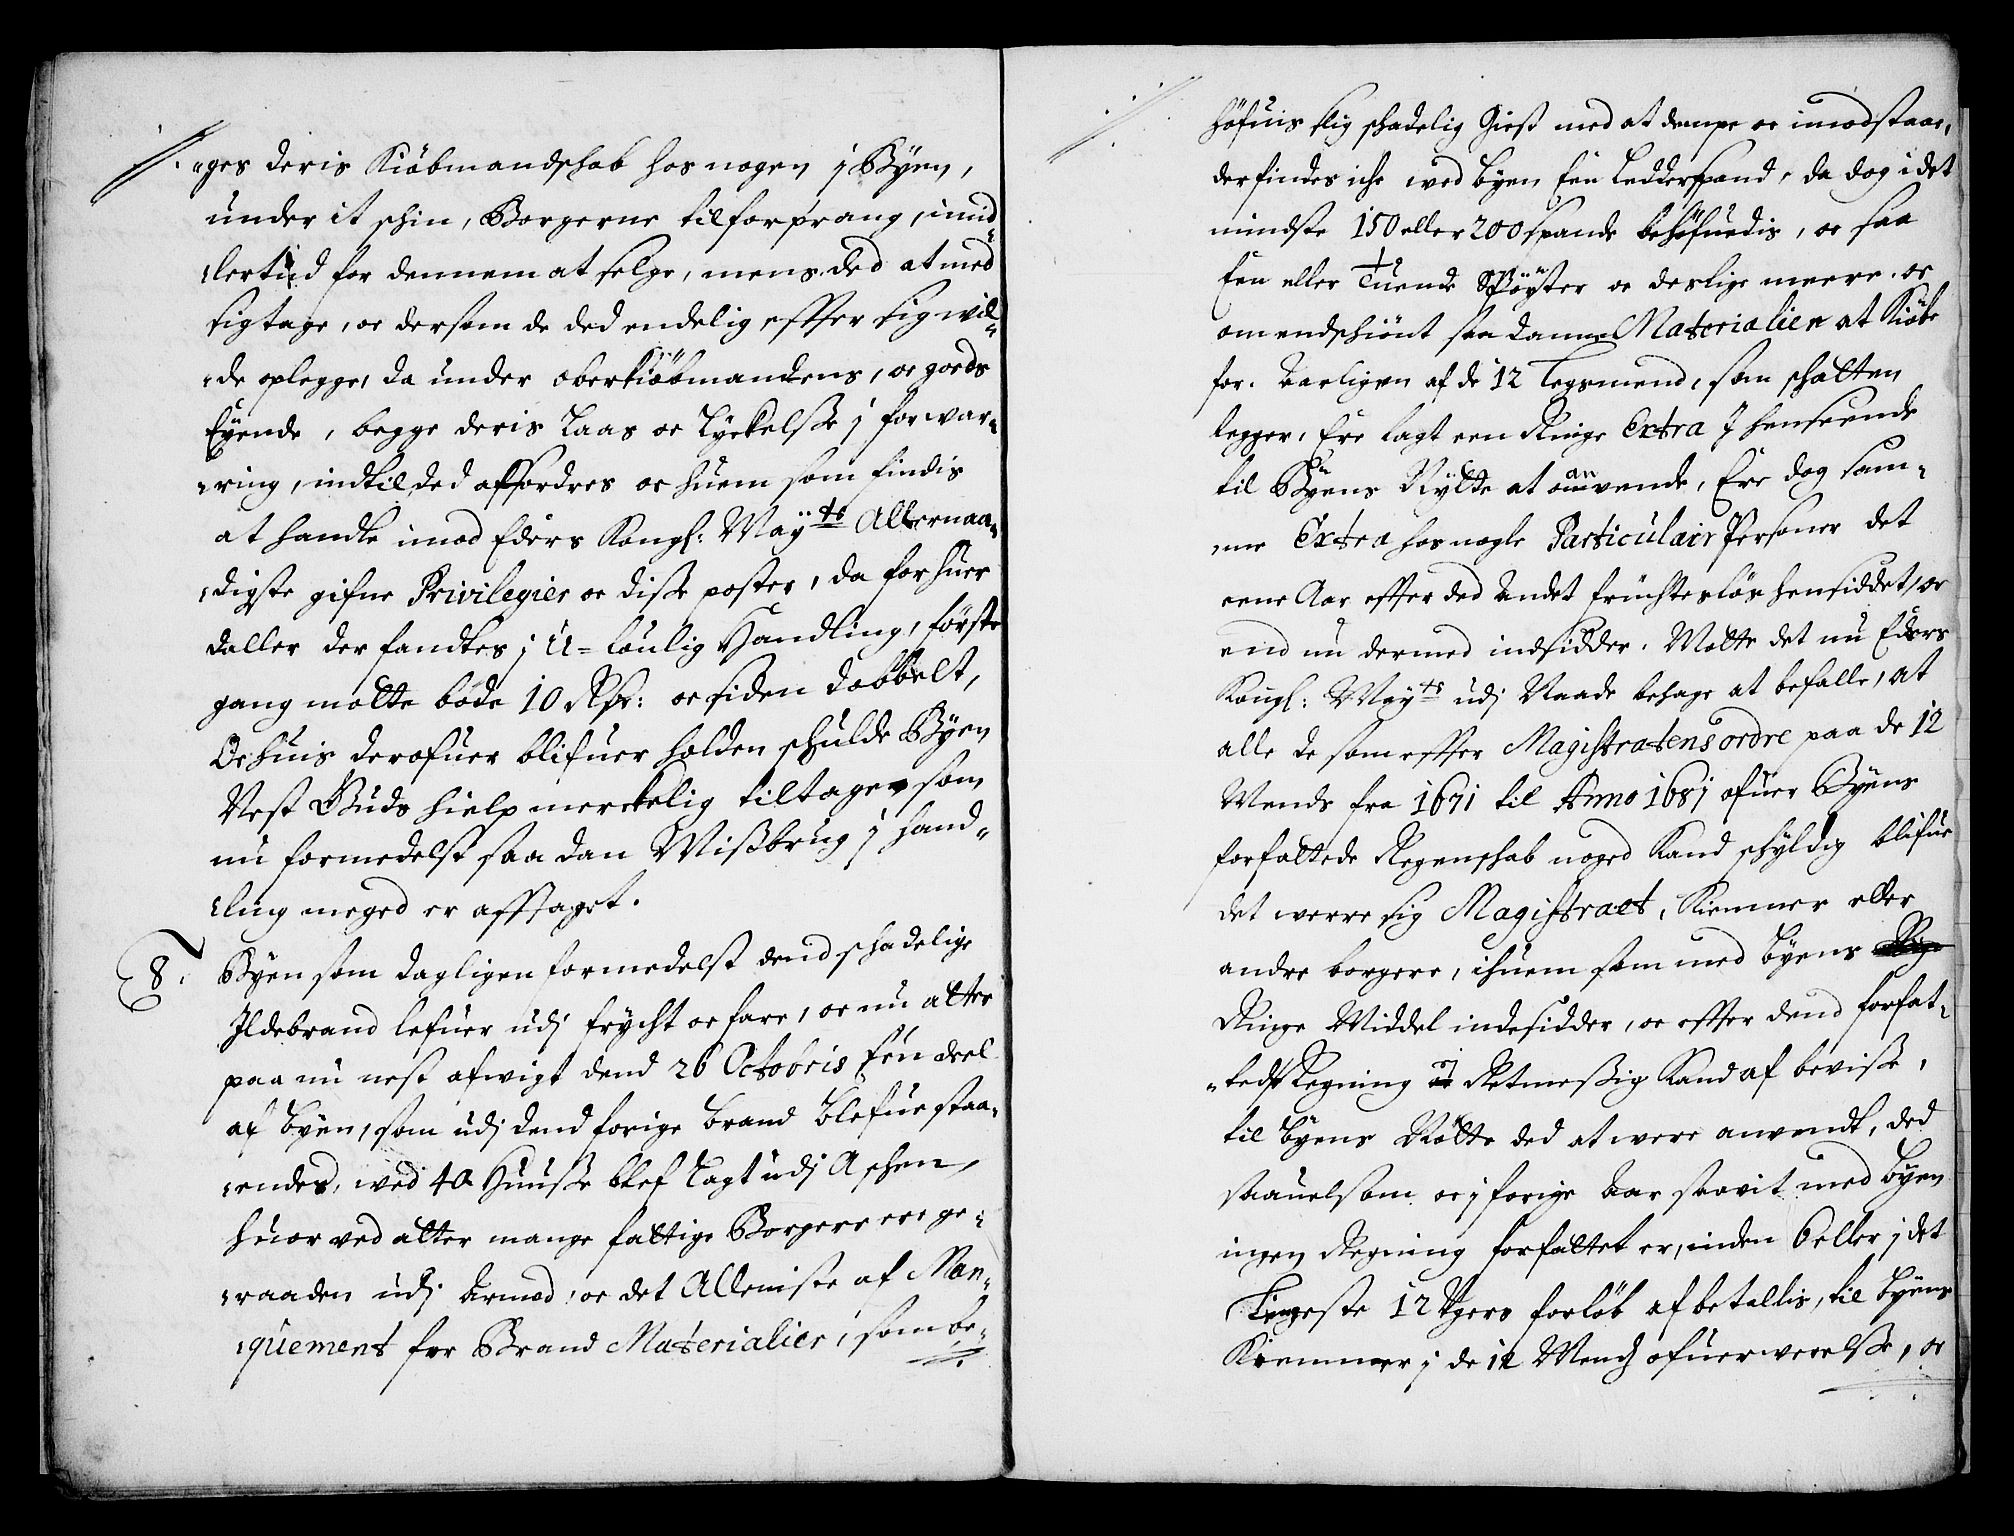 //. "ges deris Kiøbmandschab hos nogen j Byen,
under it schin, Borgerne til forprang, imid-
"lertiid for dennem at selge, mens ded at med
sig tage, oc dersom de ded endelig effter sig wil-
"de oplegge, da under oberkiöbmandens, oc goeds
Eyende, begge deris Laas oc Lyckelsse j forwar-
"ring, indtil ded affordres oc huem som findis
at handle imod Eders Kongl: Mayts Allernaa-
"digste gifne Privilegier oc disse poster, da for huer
daller der fandtes j U=loulig Handling, første
gang motte bøde 10 Rdr: oc siden dobbelt,
Oc huis derofuer blifuer holden schulde Byen
Nest Guds hielp merckelig tiltage, som
nu formedelst saadan Missbrug j hand-
"ling meged er afftaget.
8. Byen som dagligen formedelst dend schadelige
Ildebrand lefuer udj frycht oc fare, oc nu atter
paa nu nest afwigt dend 26 Octobris Een deel
af byen, som udj dend forige brand blefue staa-
"endes, wed 40 Huusse blef lagt udj Aschen,
huor ved atter mange fattige Borgere ere ge-
"raaden udj Armod, oc det Allemiste af Man-
"quement for Brand Materialier, som be-
höfuis slig schadelig Giest med at dempe oc imodstaae,
der findes iche wed byen Een Ledderspand, da dog i det
mindste 150 eller 200 spande behöfuedis, oc saa
Een eller Tuende Spröyter oc deslige meere. oc
omendschiönt saadanne Materialier at Kiöbe
for. Aarligen af de 12 Legsmend, som schatten
legger, Ere lagt een Ringe Extra J henseende
til Byens Nytte at anvende, Ere dog sam-
me Extra hos nogle Particulair Personer det
eene Aar effter ded Andet fruchtesløs hensiddet, oc
end nu dermed indsidder. Motte det nu Eders
Kongl: Mayts udj Naade behage at befalle, at
alle de som effter Magistratens ordre paa de 12
Mends fra 1671 til Anno 1681 ofuer Byens
forfattede Regenschab noged Kand schyldig blifue
det werre sig Magistraet, Kiemner eller
andre borgere, ihuem som med byens
Ringe Middel indesidder, oc effter dend forfat-
"tede Regning oc Retmessig Kand af bevisse,
til byens Nötte ded at were anvendt, ded
saauelsom oc j forige Aar saavit med byen
ingen Regning forfattet er, inden 6 eller j det
Lengeste 12 Ugers forløb af betallis, til byens
Kiemner j de 12 Mends ofuerwerelsse, oc